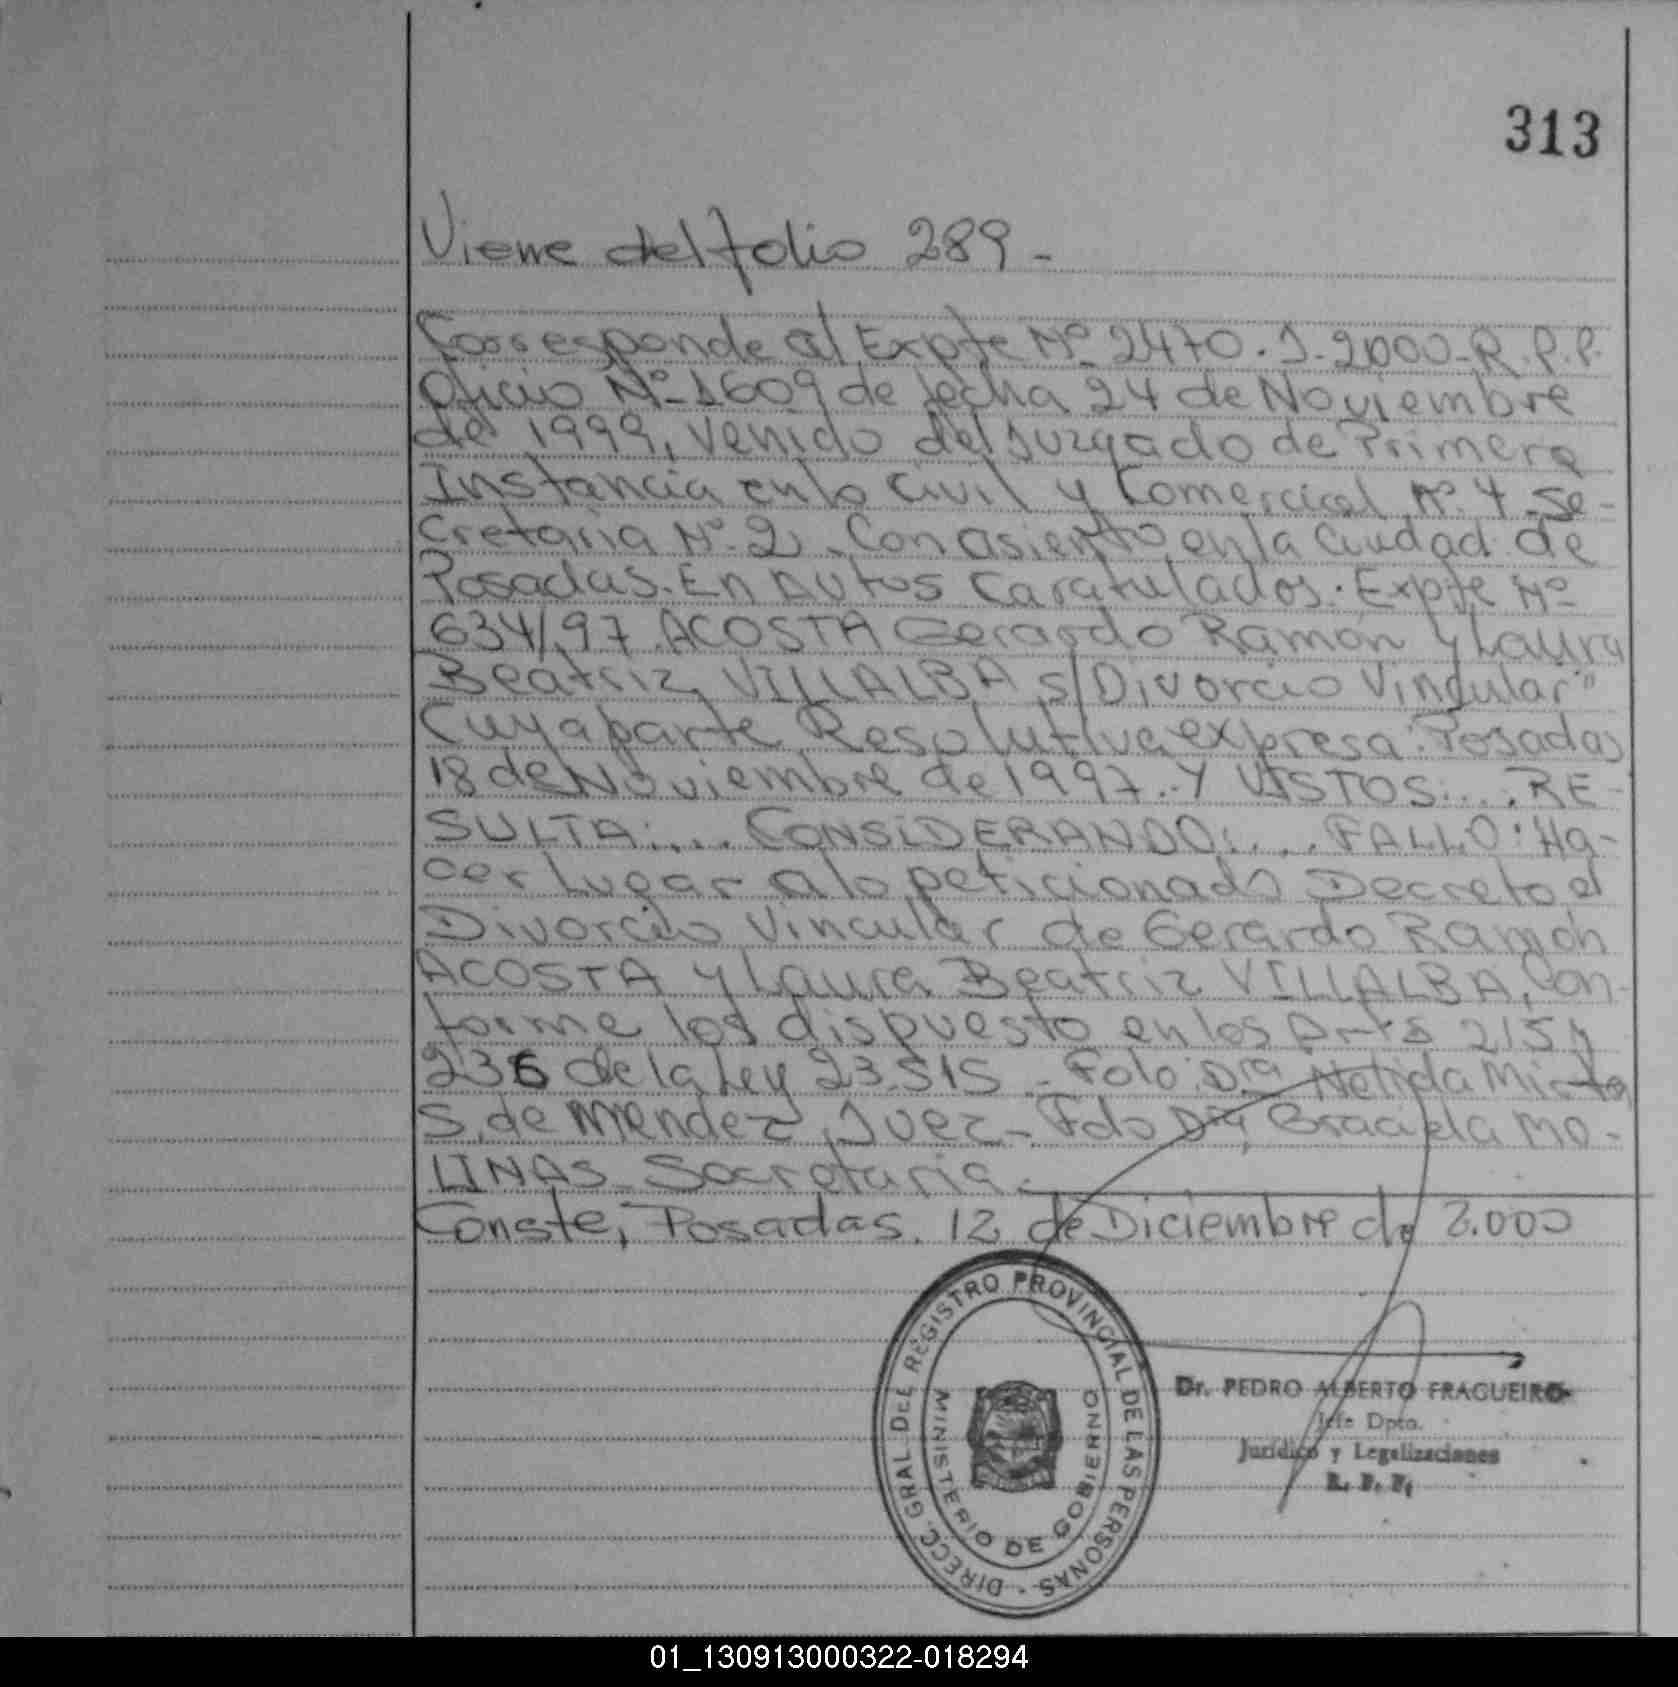 313
Viene del folio 289.-
Corresponde al Expte Nº 2470.J-2000-R.P.P.
Oficio Nº 1609 de fecha 24 de Noviembre
de 1999, venido del Juzgado de Primera
Instancia en lo Civil y Comercial Nº 4 Se-
cretaria Nº 2. Con asiento en la Ciudad de
Posadas. En Autos Caratulados: Expte Nº
634/97 ACOSTA Gerardo Ramón y Laura
Beatriz VILLALBA s/Divorcio Vingular"
Cuya parte Resolutiva expresa: Posadas
18 de Noviembre de 1997. Y VISTOS:... RE-
SULTA:.... CONSiDERANDO:.... FALLO: Ha-
cer Lugar a lo peticionado Decreto el
Divorcio Vincular de Gerardo Ramón
ACOSTA y Laura Beatriz VILLALBA, Con-
forme los dispuesto en los Arts 215 y
236 de la Ley 23.515.- Fdo: Dra Nelida Mirta
S. de Mendez, Juez - Fdo Dra, Graciela Mo-
LINAS Secretaria.
Conste, Posadas. 12 de Diciembre de 2.000
DIRECC. GRAL. DEL REGISTRO PROVINCIAL DE LAS PERSONAS -
MINISTERIO DE GOBIERNO
Dr. PEDRO ALBERTO FRAGUEIRO
Jefe Dpto.
Jurídico y Legalizaciones
R. P. P.
01_130913000322-018294